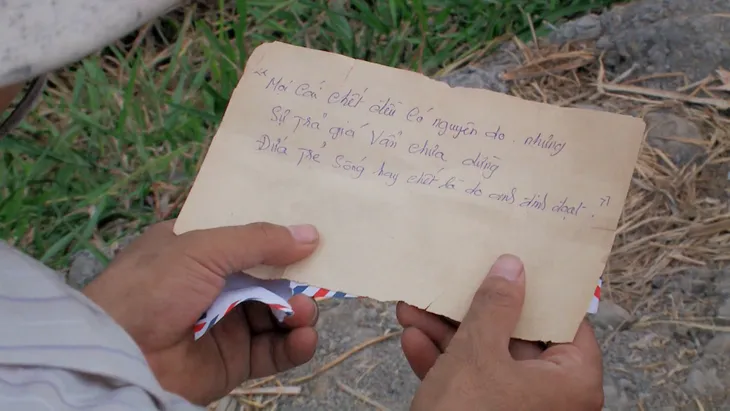 "Mỗi cái chết đều có nguyên do. nhưng
Sự trả giá vẫn chưa dừng
Đứa trẻ sống hay chết là do anh định đoạt."